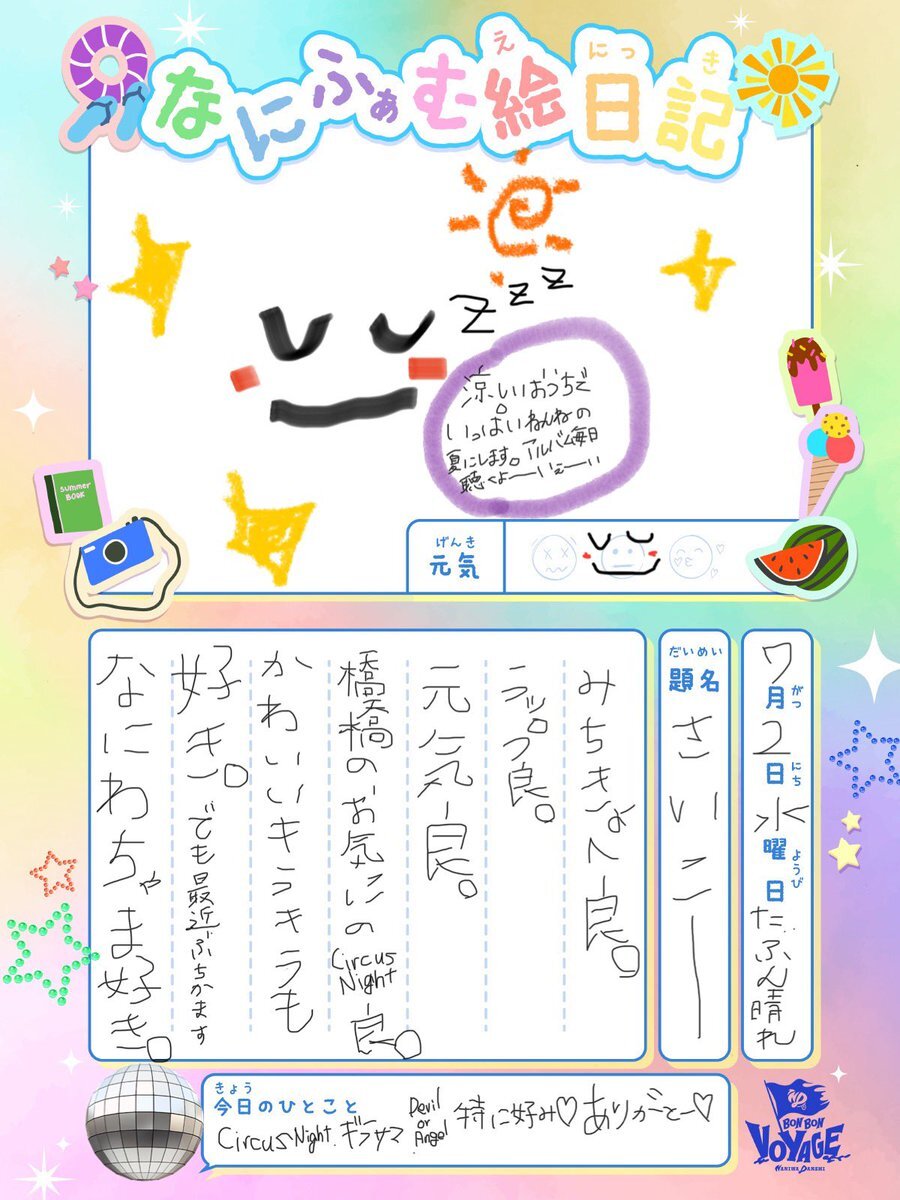 なにふぁむ絵日記
え
にっ
き
summer
BOOK
zzz
涼しいおうちで
いっぱいねんねの
夏にします。アルバム毎日
聴くよーいぇーい
げんき
元気
7月2日水曜日たぶん晴れ
がつ
にち
ようび
だいめい
題名
さいこー
みちきょへ良。
ラップ良。
元気ー良。
橋橋のお気にの
Circus
Night
良。
かわいいキラキラも
好き。でも最近ぶちかます
なにわちゃま好き。
きょう
今日のひとこと
Circus Night. ギラサマ Devil or Angel 特に好み♡ありがとー♡
BON BON
VOYAGE
NANIWA DANSHI